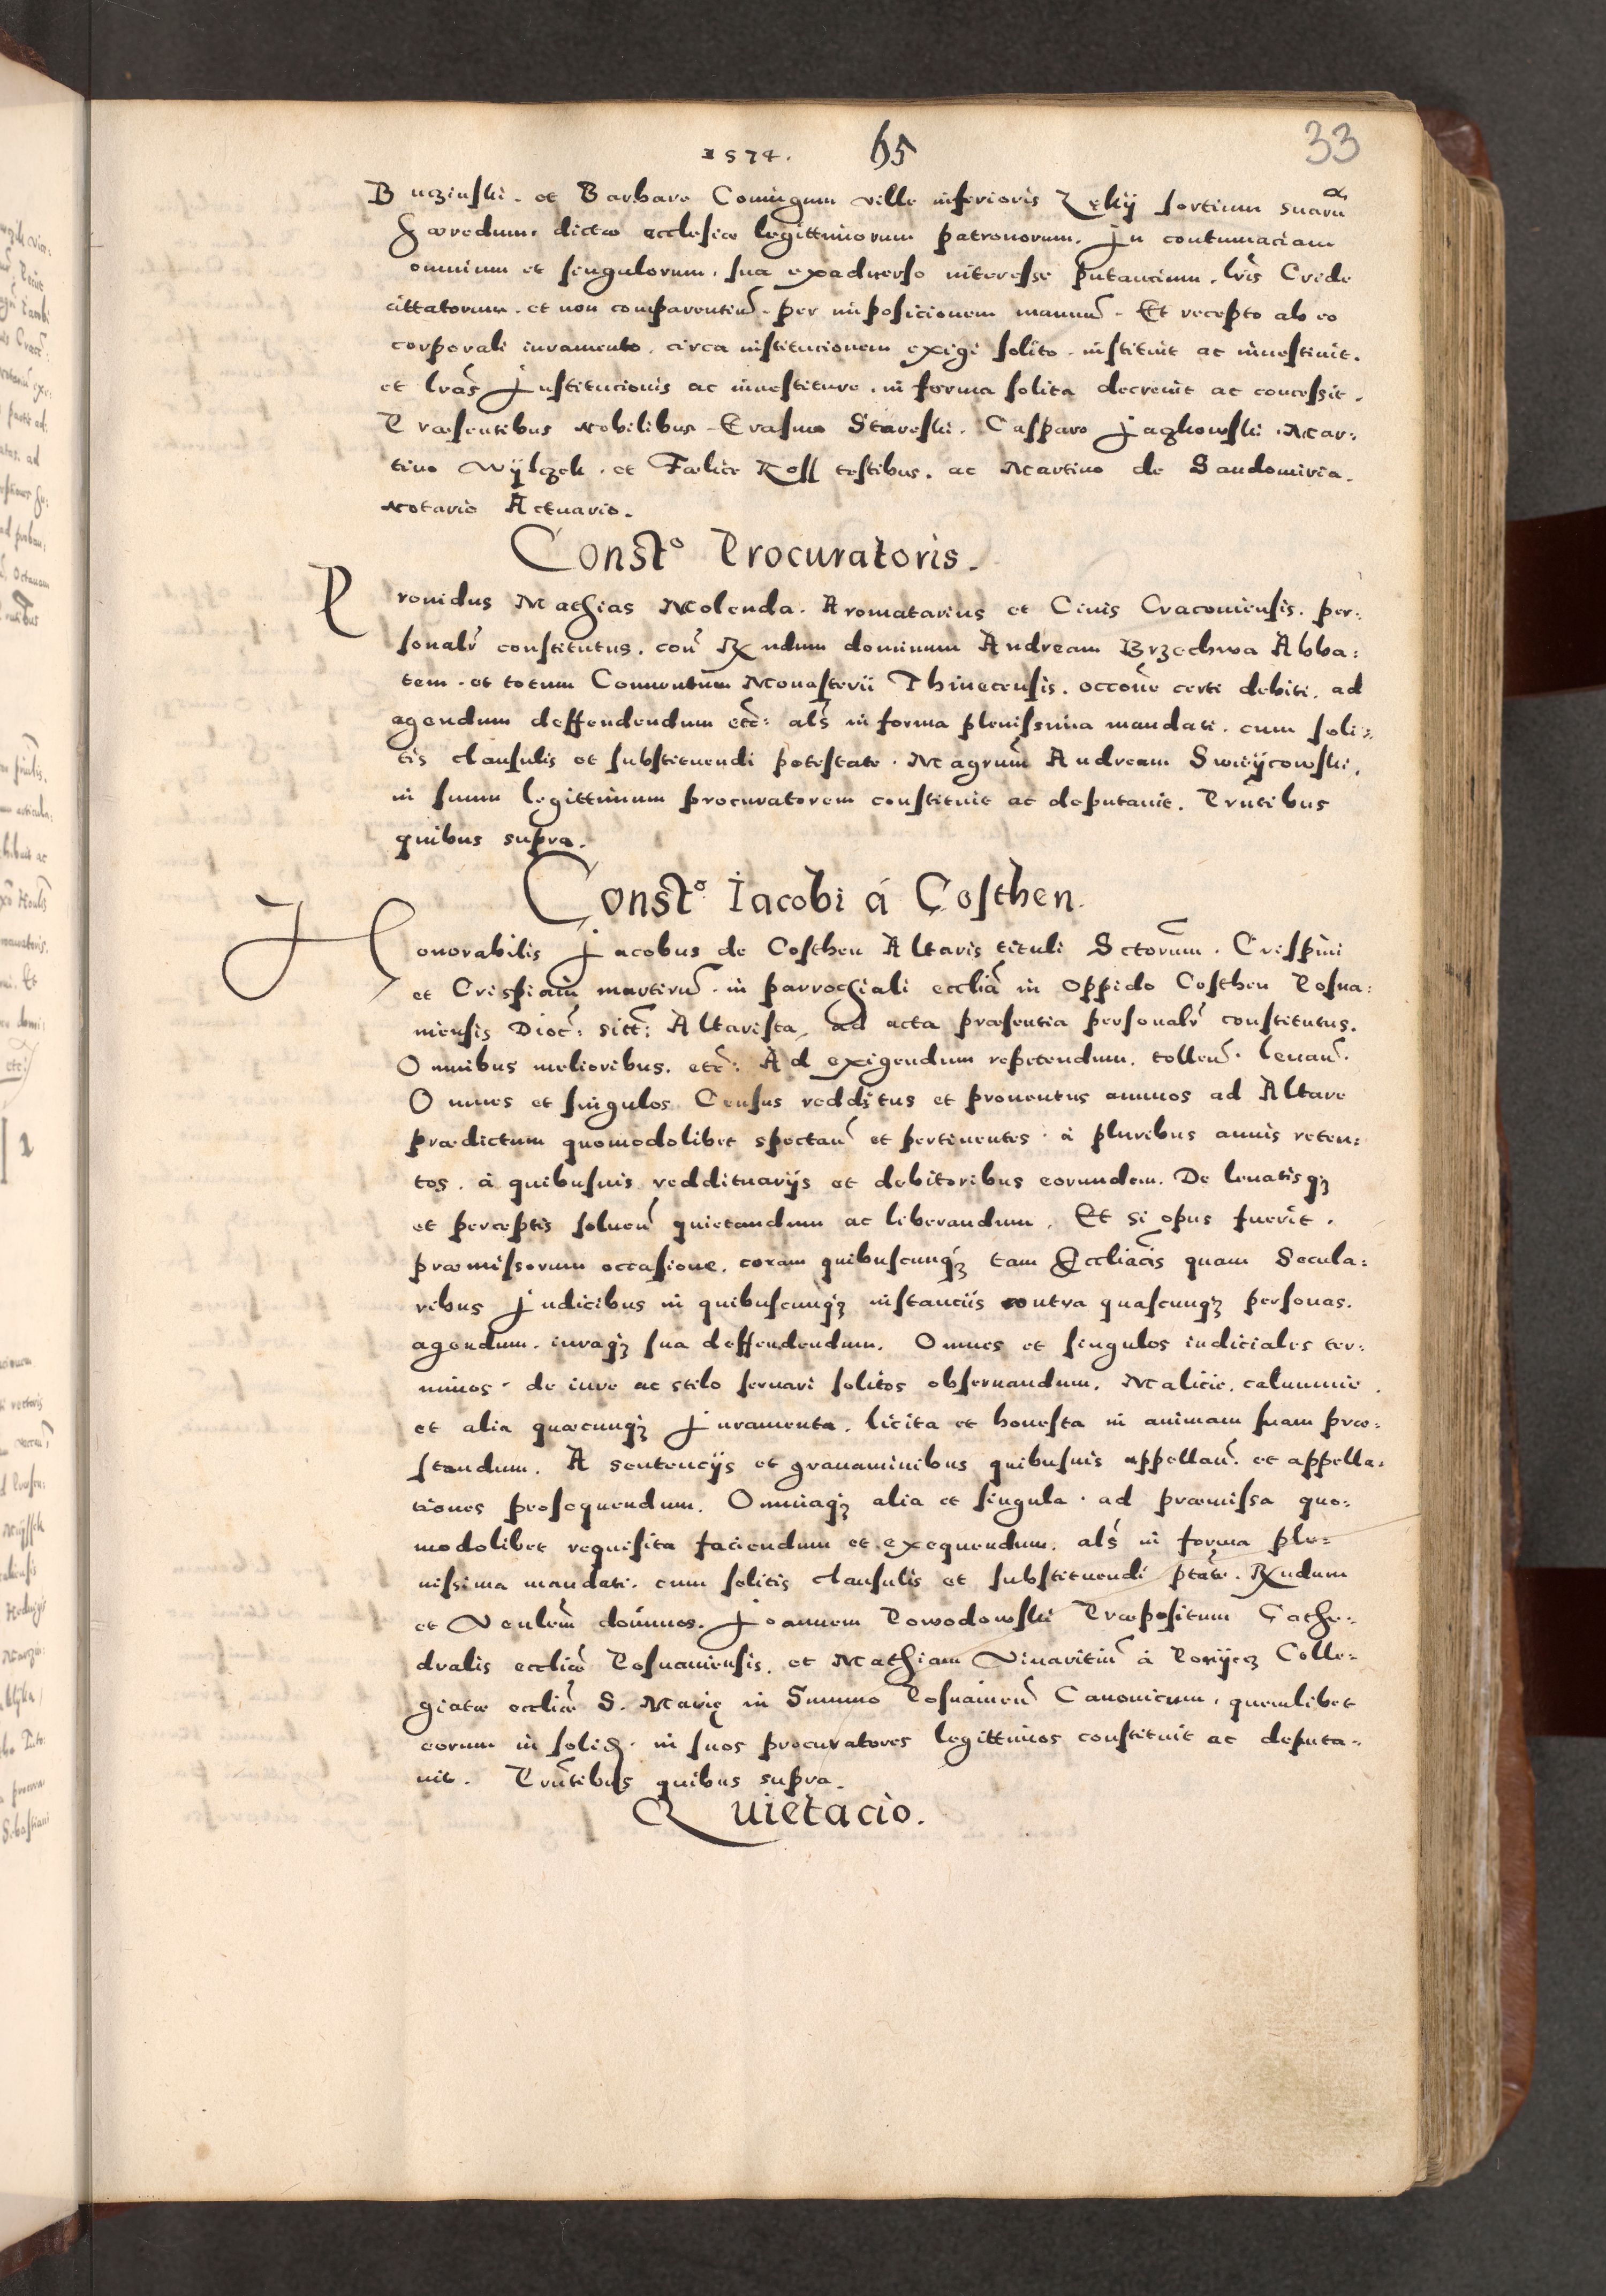 1574. 65 33
Buczinski. et Barbare Coniugum ville inferioris Zeky sortium suarũ
Hæredum. dictæ ecclesiæ legittimorum patronorum. In contumaciam
omnium et singulorum. sua exaduerso interesse putancium. lrĩs Crede
cittatorum. et non comparentiũ. per impositionem manuũ. Et recepto ab eo
corporali iuramento. circa institucionem exigi solito. instituit ac inuestiuit.
et lrãs Institucionis ac inuestiture. in forma solita decreuit ac concessit.
Præsentibus Nobilibus Erasmo Stareski. Casparo Jaczkowski. Mar:
tino Wylczek. et Fælice Koss testibus. ac Martino de Sandomiria.
Notario Actuario.
Const.º Procuratoris.
Prouidus Mathias Molenda. Aromatarius et Ciuis Cracouiensis. per:
sonalr̃ constitutus. con͂ Rx̃ndum dominum Andream Brzechwa Abba:
tem. et totum Conuentum Monasterii Thinecensis. occone certi debiti. ad
agendum deffendendum etc̃: als̃ in forma plenissima mandati. cum soli:
tis clausulis et substituendi potestate. Magrum̃ Andream Swieycowski.
in suum legittimum procuratorem constituit ac deputauit. Prn̄tibus
quibus supra.
Const.º Iacobi á Costhen.
Honorabilis Jacobus de Costhen Altaris tituli Sctorum̃. Crispini
et Crispiani martirũ. in parrochiali ecclia͂ in Oppido Costhen Posna:
niensis Dioc̃: sitt̃: Altarista, ad acta præsentia personalr̃ constitutus.
Omnibus melioribus. etc̃: Ad exigendum repetendum. tollen͂. leuan͂.
Omnes et singulos Census redditus et prouentus annuos ad Altare
prædictum quomodolibet spectan͂ et pertinentes. à pluribus annis reten:
tos. à quibusuis reddituarijs et debitoribus eorundem. De leuatisqꝫ
et perceptis soluen͂ quietandum ac liberandum. Et si opus fuerit.
præmissorum occasione. coram quibuscunqꝫ tam Eccliãcis quam Secula:
ribus Judicibus in quibuscunqꝫ instanciis contra quascunqꝫ personas.
agendum. iuraqꝫ sua deffendendum. Omnes et singulos iudiciales ter:
minos. de iure ac stilo seruari solitos obseruandum. Malicie. calumnie.
et alia quæcunqꝫ Juramenta. licita et honesta in animam suam præ:
standum. A sentencijs et grauaminibus quibusuis appellan͂. et appella:
tiones prosequendum. Omniaqꝫ alia et singula. ad præmissa quo:
modolibet requisita faciendum et exequendum. als̃ in forma ple:
nissima mandati. cum solitis clausulis et substituendi ptãte. Rx̃ndum
et Venlem̃ dominos. Joannem Powodowski Præpositum Cathe:
dralis eccliæ Posnaniensis. et Mathiam Vinaritiũ à Colle:
giatæ eccliæ S. Marię in Summo Posnanien͂ Canonicum. quemlibet
eorum in solid. in suos procuratores legittimos constituit ac deputa:
uit. Prn̄tibus quibus supra.
Quietacio.